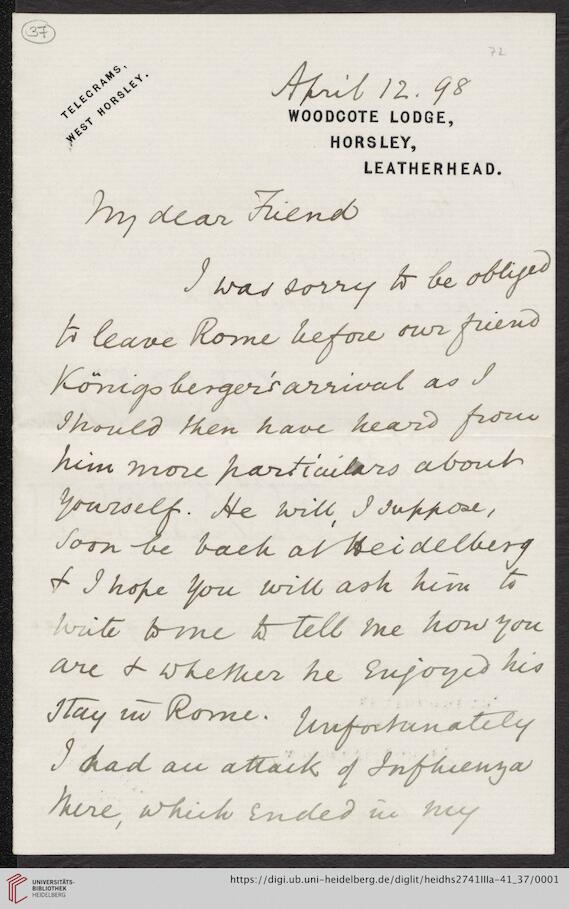 37
72
TELEGRAMS,
WEST HORSLEY.
April 12. 98
WOODCOTE LODGE,
HORSLEY,
LEATHERHEAD.
My dear Friend
I was sorry to be obliged
to leave Rome before our friend
Königsberger's arrival as I
should then have heard from
him more particulars about
yourself. He will, I suppose,
soon be back at Heidelberg
& I hope you will ask him to
write to me to tell me how you
are & whether he enjoyed his
stay in Rome. Unfortunately
I had an attack of Influenza
there, which ended in my
UNIVERSITÄTS-
BIBLIOTHEK
HEIDELBERG
https://digi.ub.uni-heidelberg.de/diglit/heidhs2741IIIa-41_37/0001